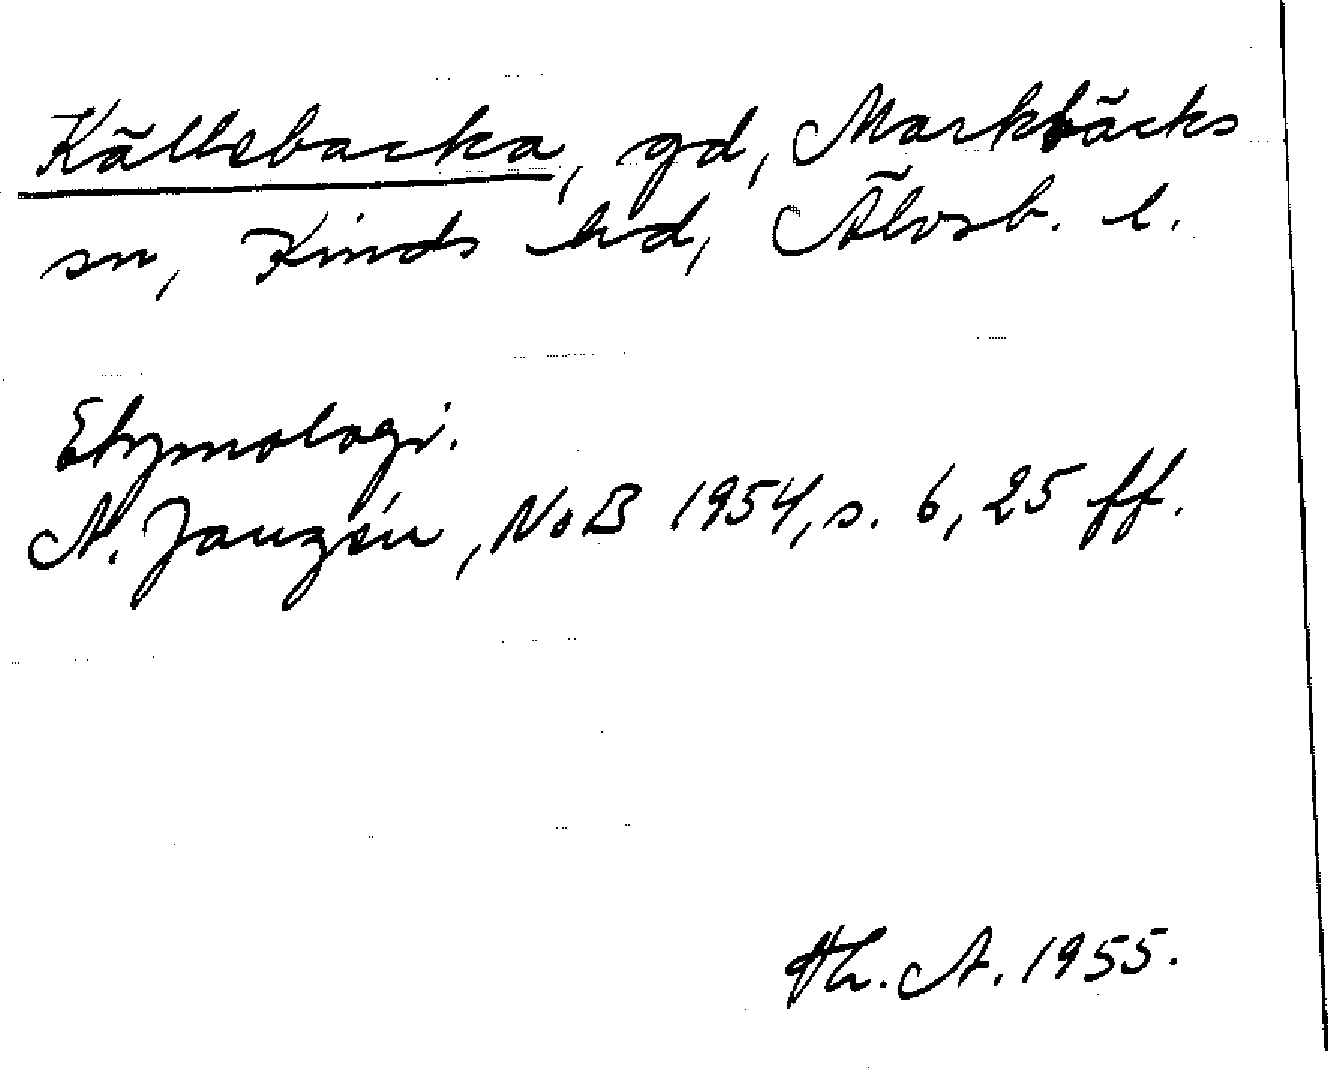 Källebacka, gd, Markbäcks
sn, Kinds hd, Älvsb. l.
Etymologi.
A. Janzén, NoB 1954, s. 6, 25 ff.
Th. A. 1955.